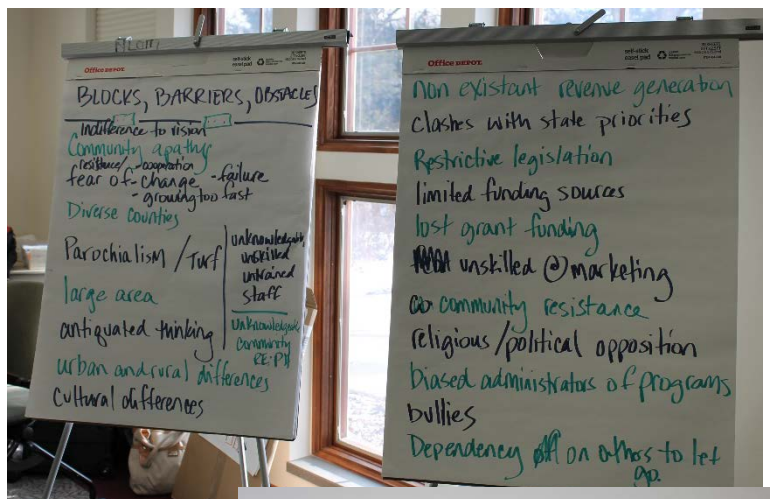 Office DEPOT
self-stick
easel pad
BLOCKS, BARRIERS, OBSTACLES
Indifference to vision
Community apathy
resistance/ - cooperation
fear of - change - failure
- growing too fast
Diverse counties
Parochialism / Turf
large area
antiquated thinking
urban and rural differences
cultural differences
unskilled
untrained
staff
community
Office DEPOT
self-stick
easel pad
non existant revenue generation
clashes with state priorities
Restrictive legislation
limited funding sources
lost grant funding
unskilled @ marketing
community resistance
religious/political opposition
biased administrators of programs
bullies
Dependency on others to let
go.